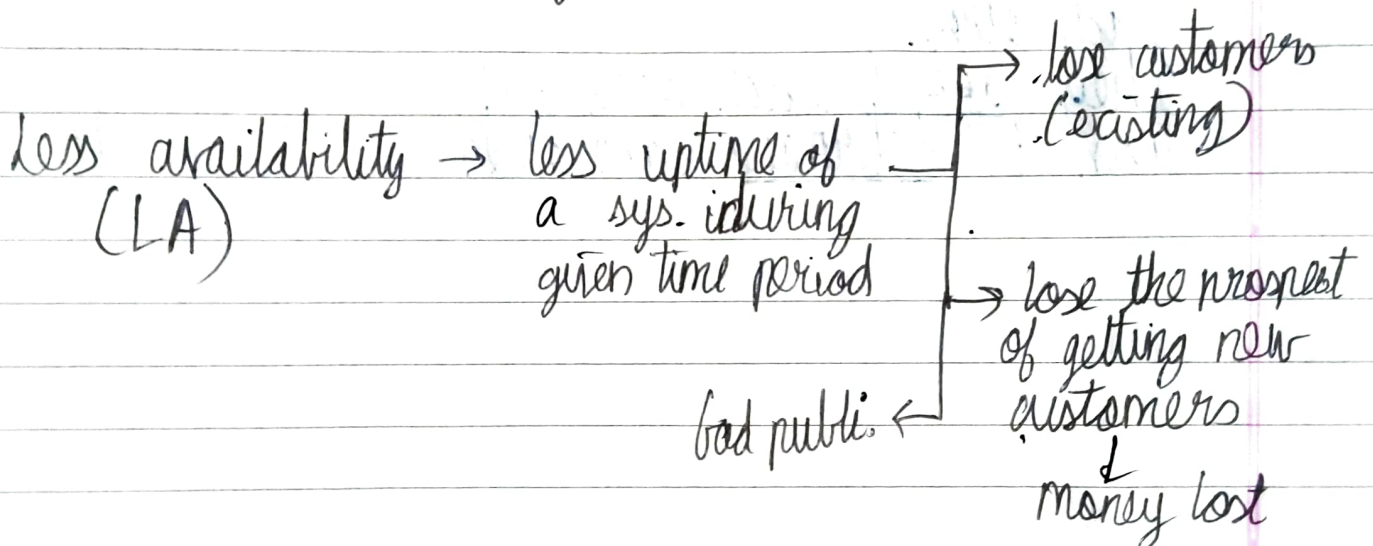 Less availability → less uptime of
(LA)
a sys. during
given time period
→ lose customers
(existing)
→ lose the prospect
of getting new
customers
↓
money lost
bad publi. ←